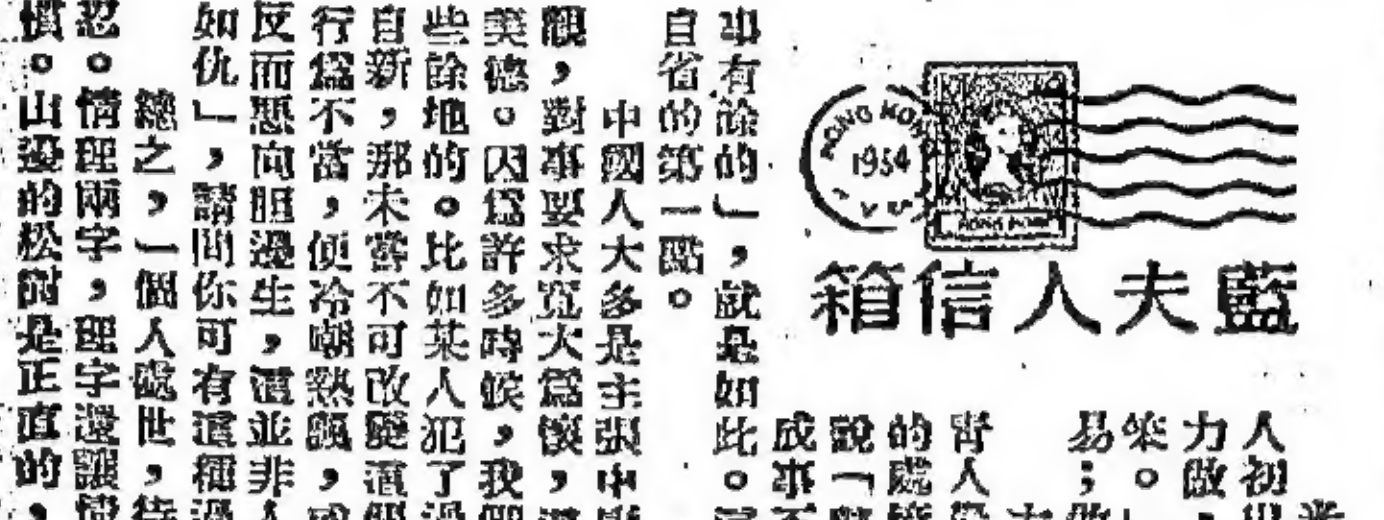 藍夫人信箱
HONG KON
1954
HONG KONG
人初
力做
來。
易；做
胥人
的處
說「
成事不
事有餘的」，就是如此。
自省的第一點。
中國人大多是主張中
觀，對事要求寬大為懷，
美德。因爲許多時候，我們
些餘地的。比如某人犯了過
自新，那未嘗不可改變這個
行爲不當，便冷嘲熱諷，
反而惡向胆邊生，這並非人
如仇」，請問你可有這種過
總之，一個人處世，待
忍。情理兩字，理字還讓情
慣。山邊的松樹是正直的，